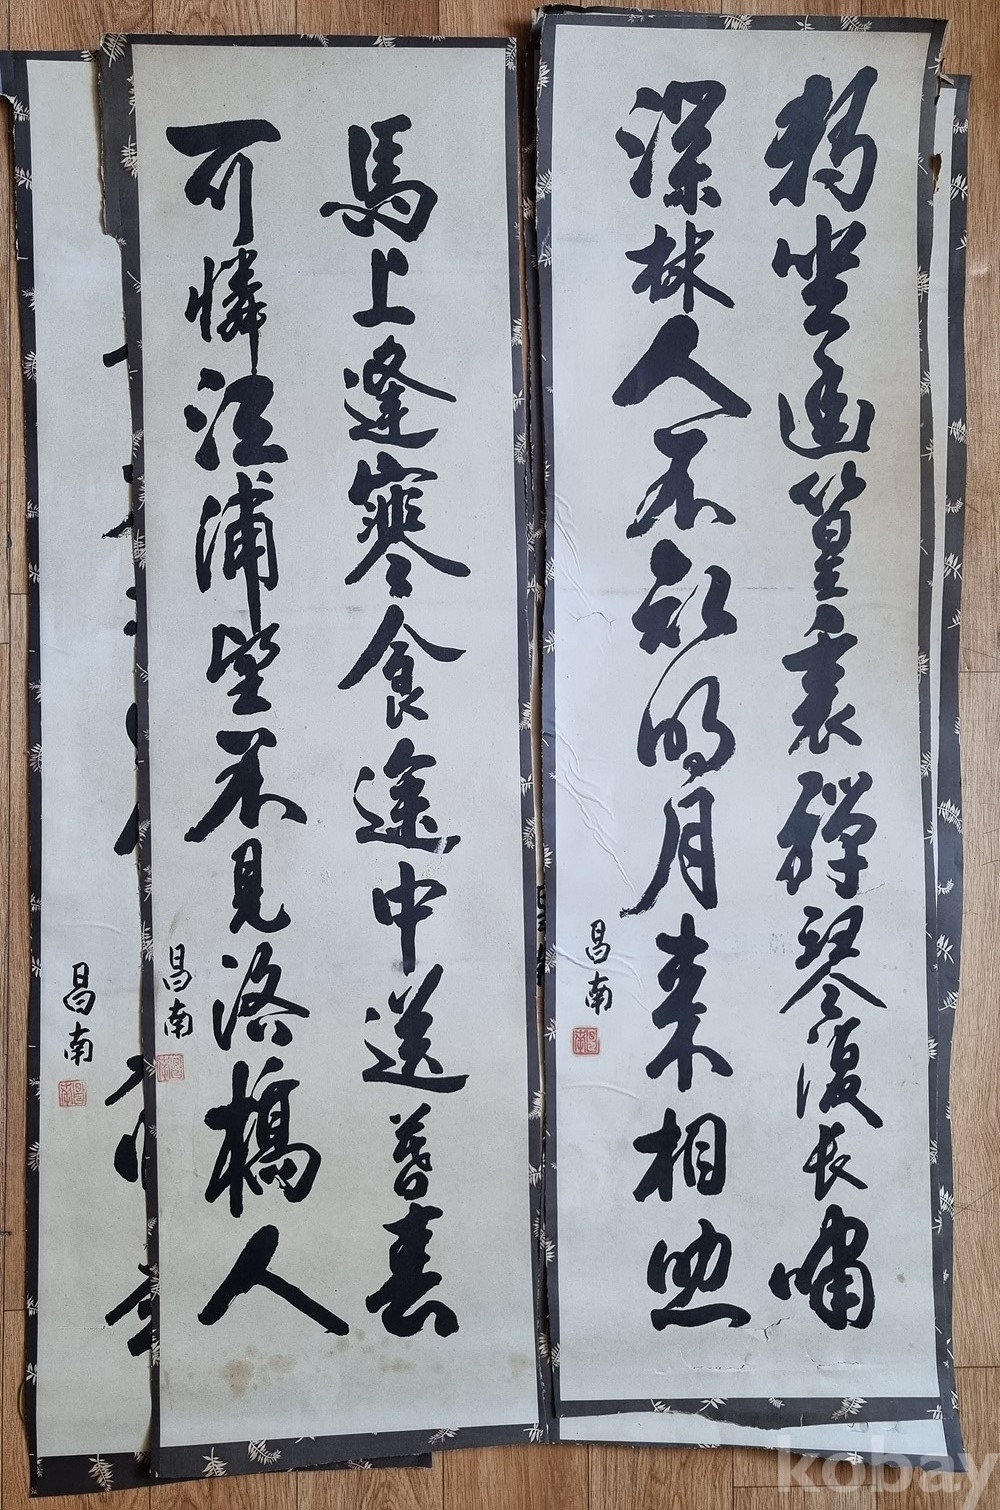 獨坐幽篁裏彈琴復長嘯
深林人不知明月来相照
昌南
馬上逢寒食途中送暮春
可憐江浦望不見洛橋人
昌南
昌南
kobay